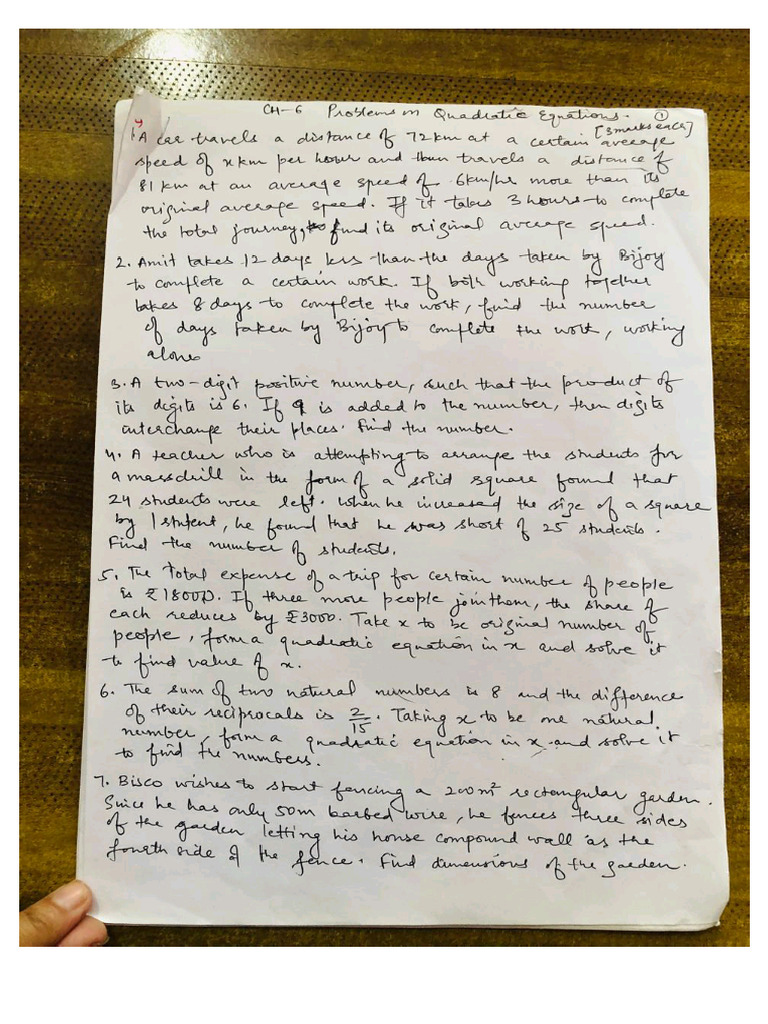 CH-6 Problems on Quadratic Equations. ①
[3 marks each]
1. A car travels a distance of 72 km at a certain average
speed of x km per hour and then travels a distance of
81 km at an average speed of 6km/hr more than its
original average speed. If it takes 3 hours to complete
the total journey, find its original average speed.
2. Amit takes 12 days less than the days taken by Bijoy
to complete a certain work. If both working together
takes 8 days to complete the work, find the number
of days taken by Bijoy to complete the work, working
alone
3. A two-digit positive number, such that the product of
its digits is 6. If 9 is added to the number, then digits
interchange their places. Find the number.
4. A teacher who is attempting to arrange the students for
a mass drill in the form of a solid square found that
24 students were left. When he increased the size of a square
by 1 student, he found that he was short of 25 students.
Find the number of students.
5. The Total expense of a trip for certain number of people
is ₹18000. If three more people join them, the share of
each reduces by ₹3000. Take x to be original number of
people, form a quadratic equation in x and solve it
to find value of x.
6. The sum of two natural numbers is 8 and the difference
of their reciprocals is 2/15. Taking x to be one natural
number, form a quadratic equation in x and solve it
to find the numbers.
7. Bisco wishes to start fencing a 200m² rectangular garden.
Since he has only 50m barbed wire, he fences three sides
of the garden letting his house compound wall as the
fourth side of the fence. Find dimensions of the garden.